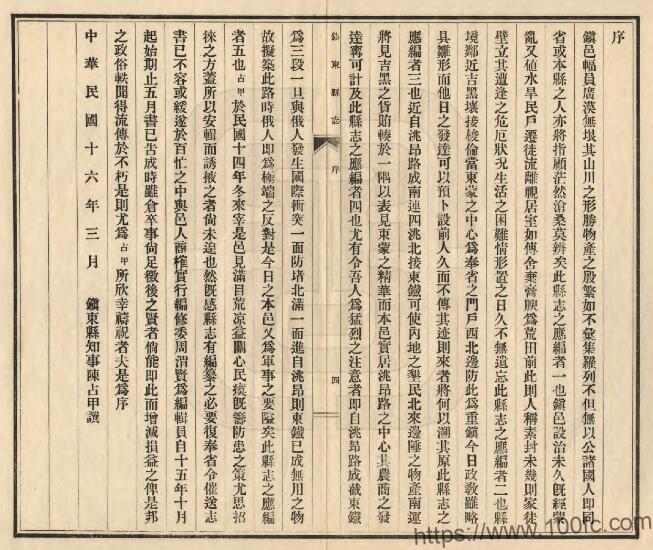 序
鎮邑幅員廣漠無垠其山川之形勝物產之殷繁如不彙集羅列不但無以公諸國人即同
省或本縣之人亦將指顧茫然滄桑莫辨矣此縣志之應編者一也鎮邑設治未久旣經蒙
亂又値水旱民戶遷徙流離視居室如傳舍棄膏腴爲荒田前此則人稱素封未幾則家徒
壁立其遭逢之危厄狀况生活之困難情形置之日久不無遺忘此縣志之應編者二也縣
境鄰近吉黑壤接梭倫當東蒙之中心爲奉省之門戶西北邊防此爲重鎮今日政敎雖略
具雛形而他日之發達可以預卜設前人久而不傳其迹則來者將何以溯其原此縣志之
應編者三也近自洮昂路成南連四洮北接東鐵可使內地之墾民北來邊陲之物產南運
將見吉黑之貨賄輳於一隅以表見東蒙之精華而本邑實居洮昂路之中心其農商之發
達寗可計及此縣志之應編者四也尤有令吾人爲猛烈之注意者即自洮昂路成截東鐵
鎮東縣志
序
四
爲三段一旦與俄人發生國際衝突一面防堵北滿一面進自洮昂則東鐵已成無用之物
故擬築此路時俄人即爲極端之反對是今日之本邑又爲軍事之要隘矣此縣志之應編
者五也占甲於民國十四年冬來宰是邑見滿目荒凉益關心民瘼旣籌防患之策尤思招
徠之方蓋所以安輯而誘掖之者尙未遑也然旣感縣志有編纂之必要復奉省令催送志
書已不容或緩遂於百忙之中與邑人商榷實行編修委周渭賢爲編輯員自十五年十月
起始期止五月書已告成時雖倉卒事尙足徵後之賢者倘能即此而增減損益之俾是邦
之政俗軼聞得流傳於不朽是則尤爲占甲所欣幸禱祝者夫是爲序
中華民國十六年三月 鎮東縣知事陳占甲譔
https://www.100fc.com